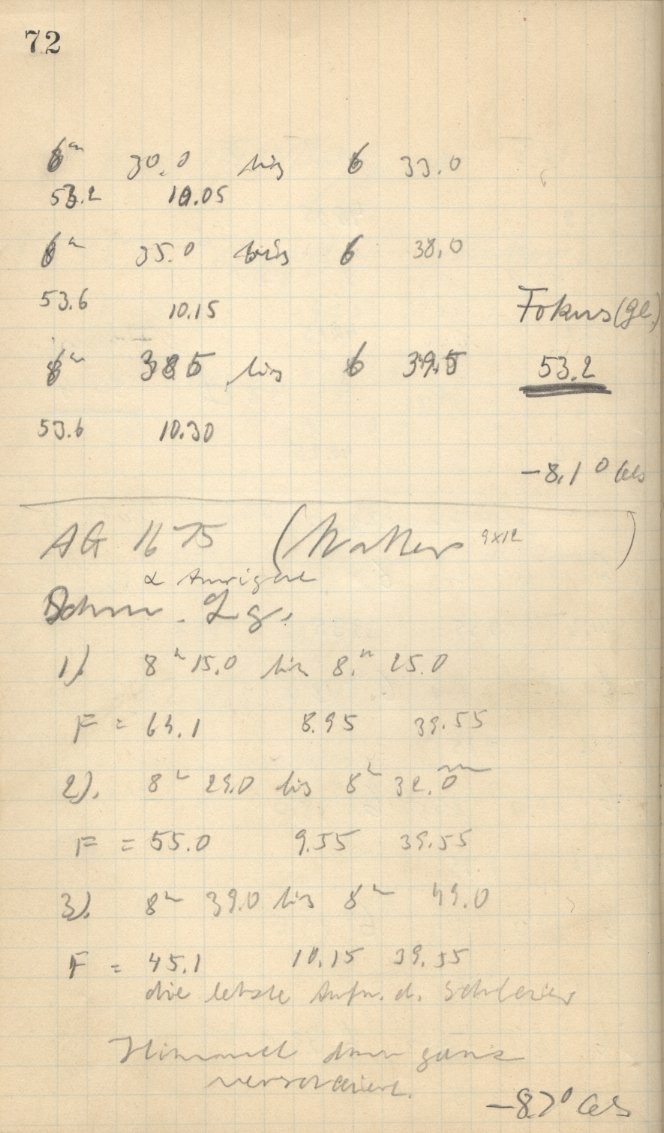 72
6ʰ 30.0 bis 6 33.0
53.2 10.05
6ʰ 35.0 bis 6 38,0
53.6 10.15
Fokus (gl.)
6ʰ 38.5 bis 6 39.5 53.2
53.6 10.30
-8,1° Cels
AG 1675 ( 9x12 )
α Aurigae
Schm. Lg.
1) 8ʰ 15.0 bis 8ʰ 25.0
F = 64.1 8.95 39.55
2). 8ʰ 29.0 bis 8ʰ 32.0ᵐ
F = 55.0 9.55 39.55
3). 8ʰ 39.0 bis 8ʰ 49.0
F = 45.1 10.15 39.55
die letzte Aufn. d. Schleier
Himmel dann ganz
verschleiert.
-8.7° Cels